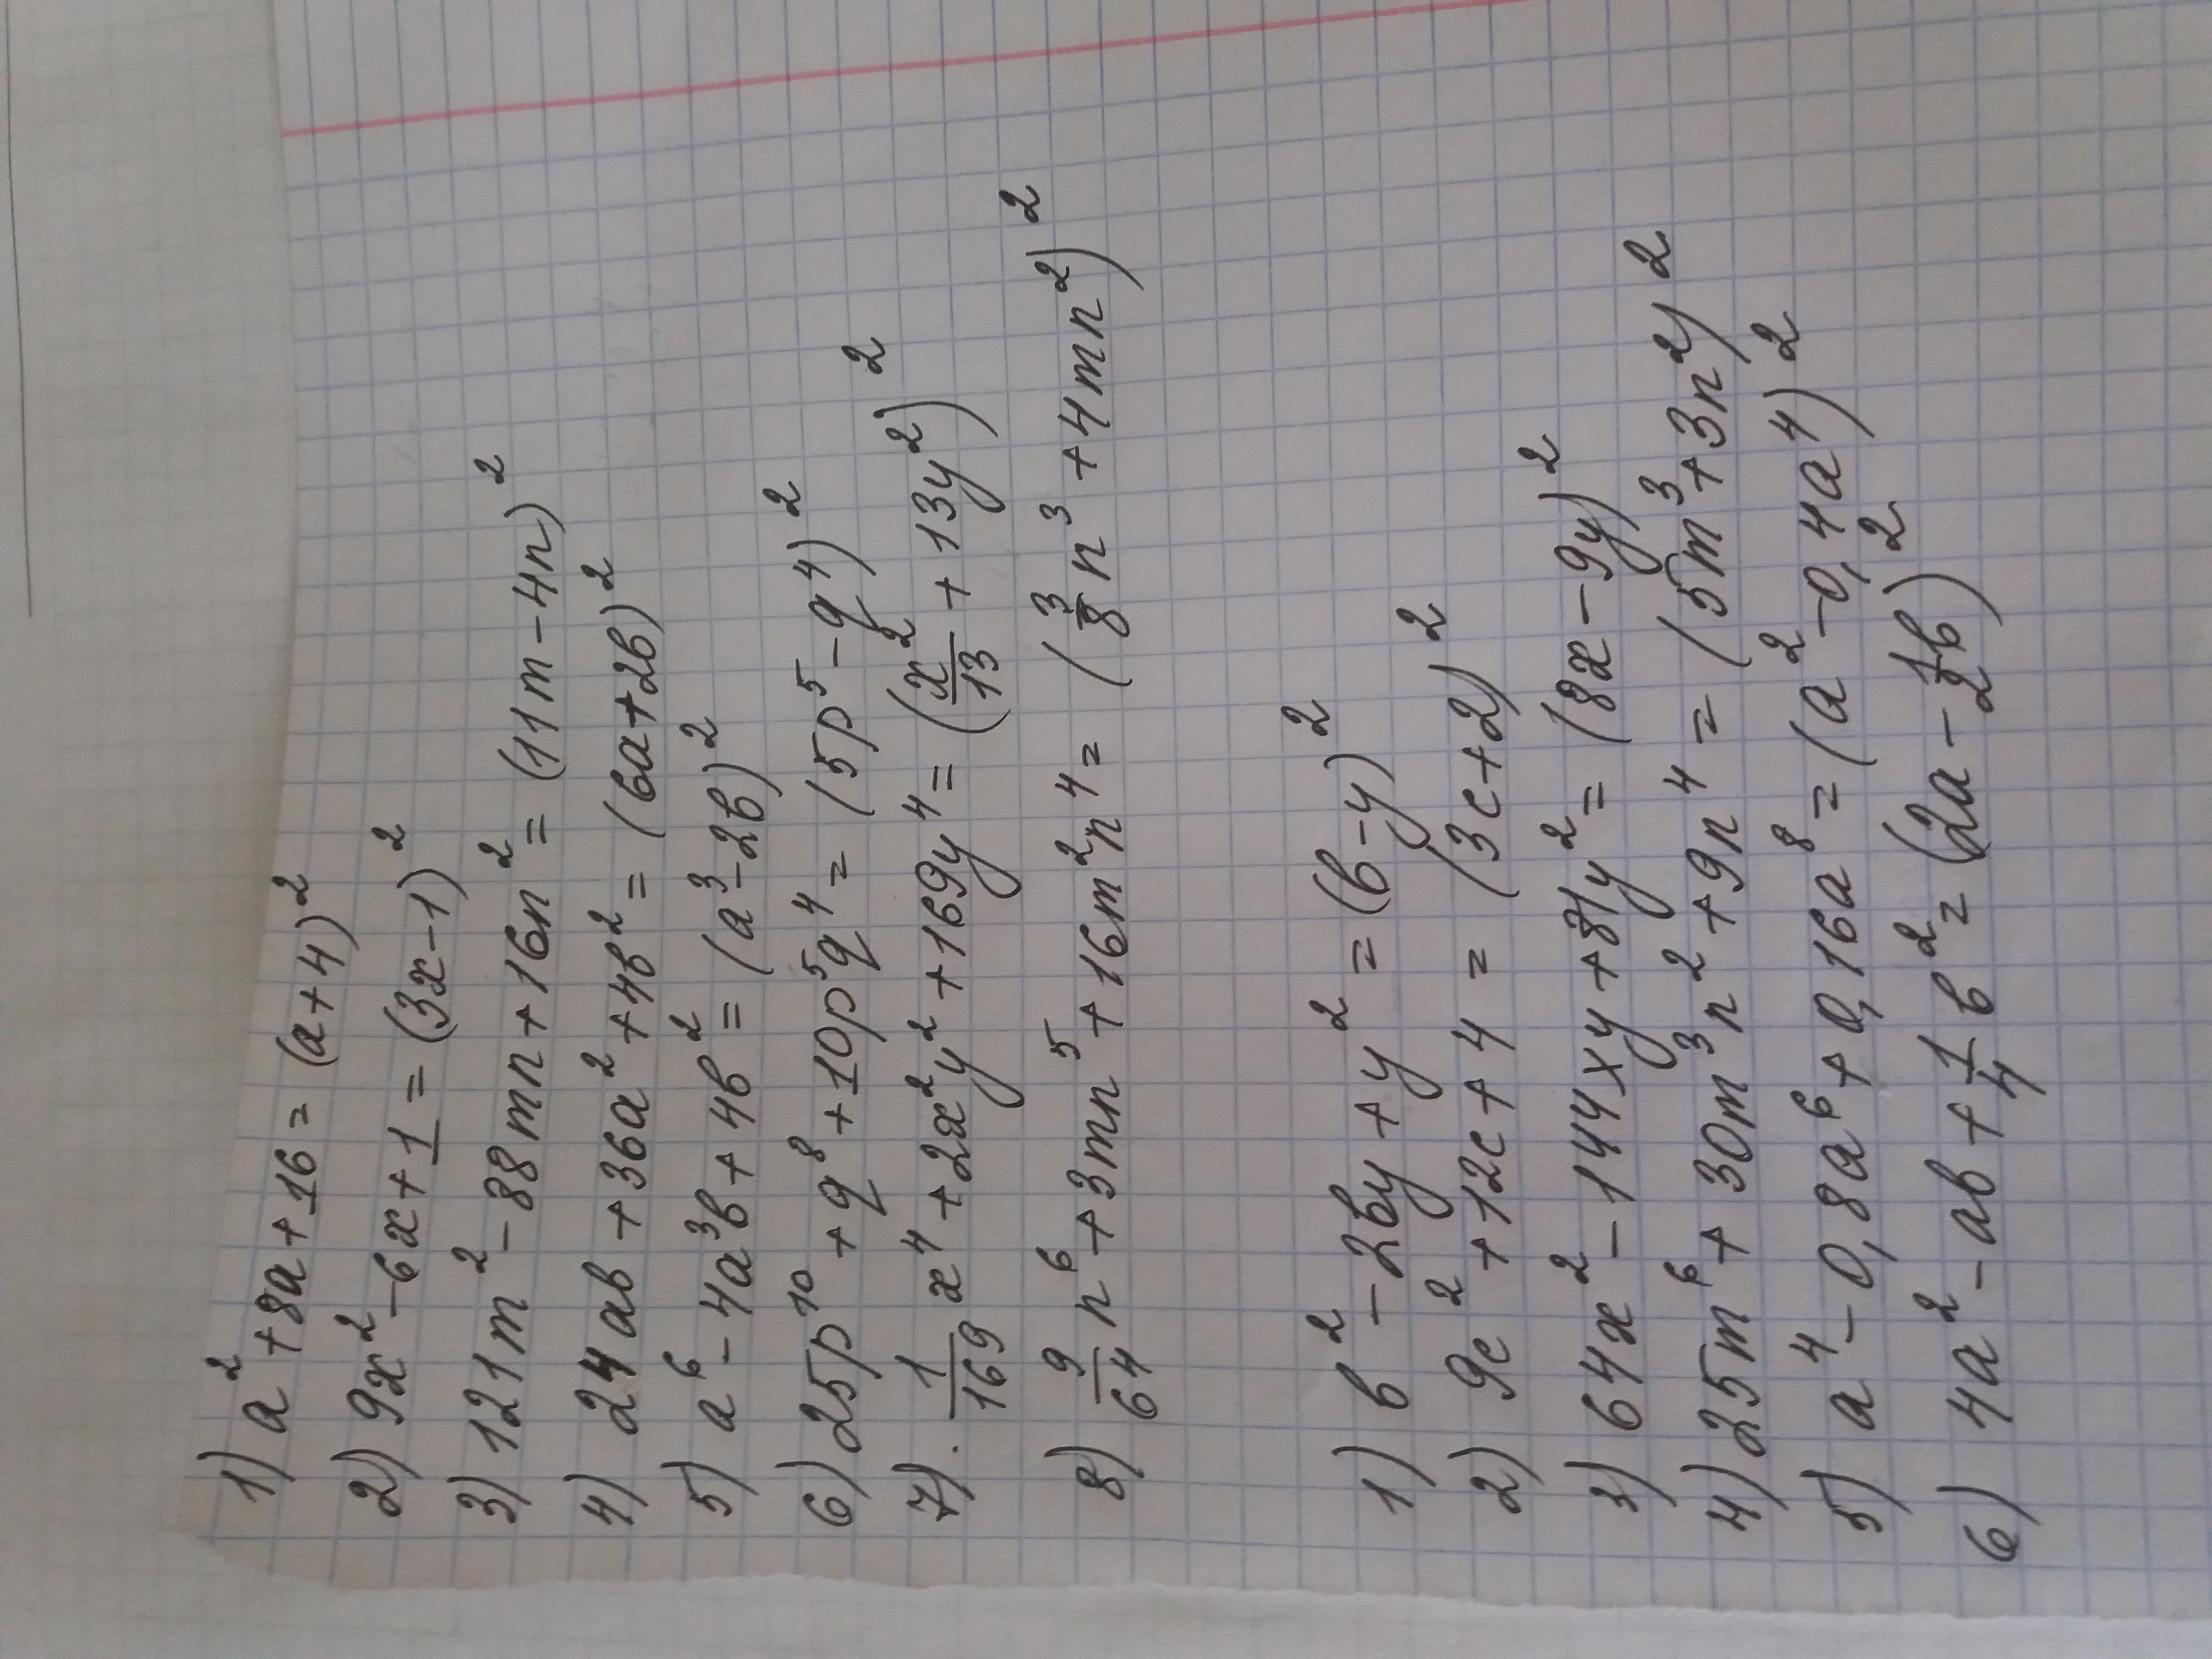 1) a² + 8a + 16 = (a + 4)²
2) 9x² - 6x + 1 = (3x - 1)²
3) 121m² - 88mn + 16n² = (11m - 4n)²
4) 24ab + 36a² + 4b² = (6a + 2b)²
5) a⁶ - 4a³b + 4b² = (a³ - 2b)²
6) 25p¹⁰ + q⁸ + 10p⁵q⁴ = (5p⁵ - q⁴)²
7) · 1/169 x⁴ + 2x²y² + 169y⁴ = (x²/13 + 13y²)²
8) 9/64 n⁶ + 3mn⁵ + 16m²n⁴ = (3/8 n³ + 4mn²)²
1) b² - 2by + y² = (b - y)²
2) 9c² + 12c + 4 = (3c + 2)²
3) 64x² - 144xy + 81y² = (8x - 9y)²
4) 25m⁶ + 30m³n² + 9n⁴ = (5m³ + 3n²)²
5) a⁴ - 0,8a⁶ + 0,16a⁸ = (a² - 0,4a⁴)²
6) 4a² - ab + 1/4 b² = (2a - 1/2 b)²